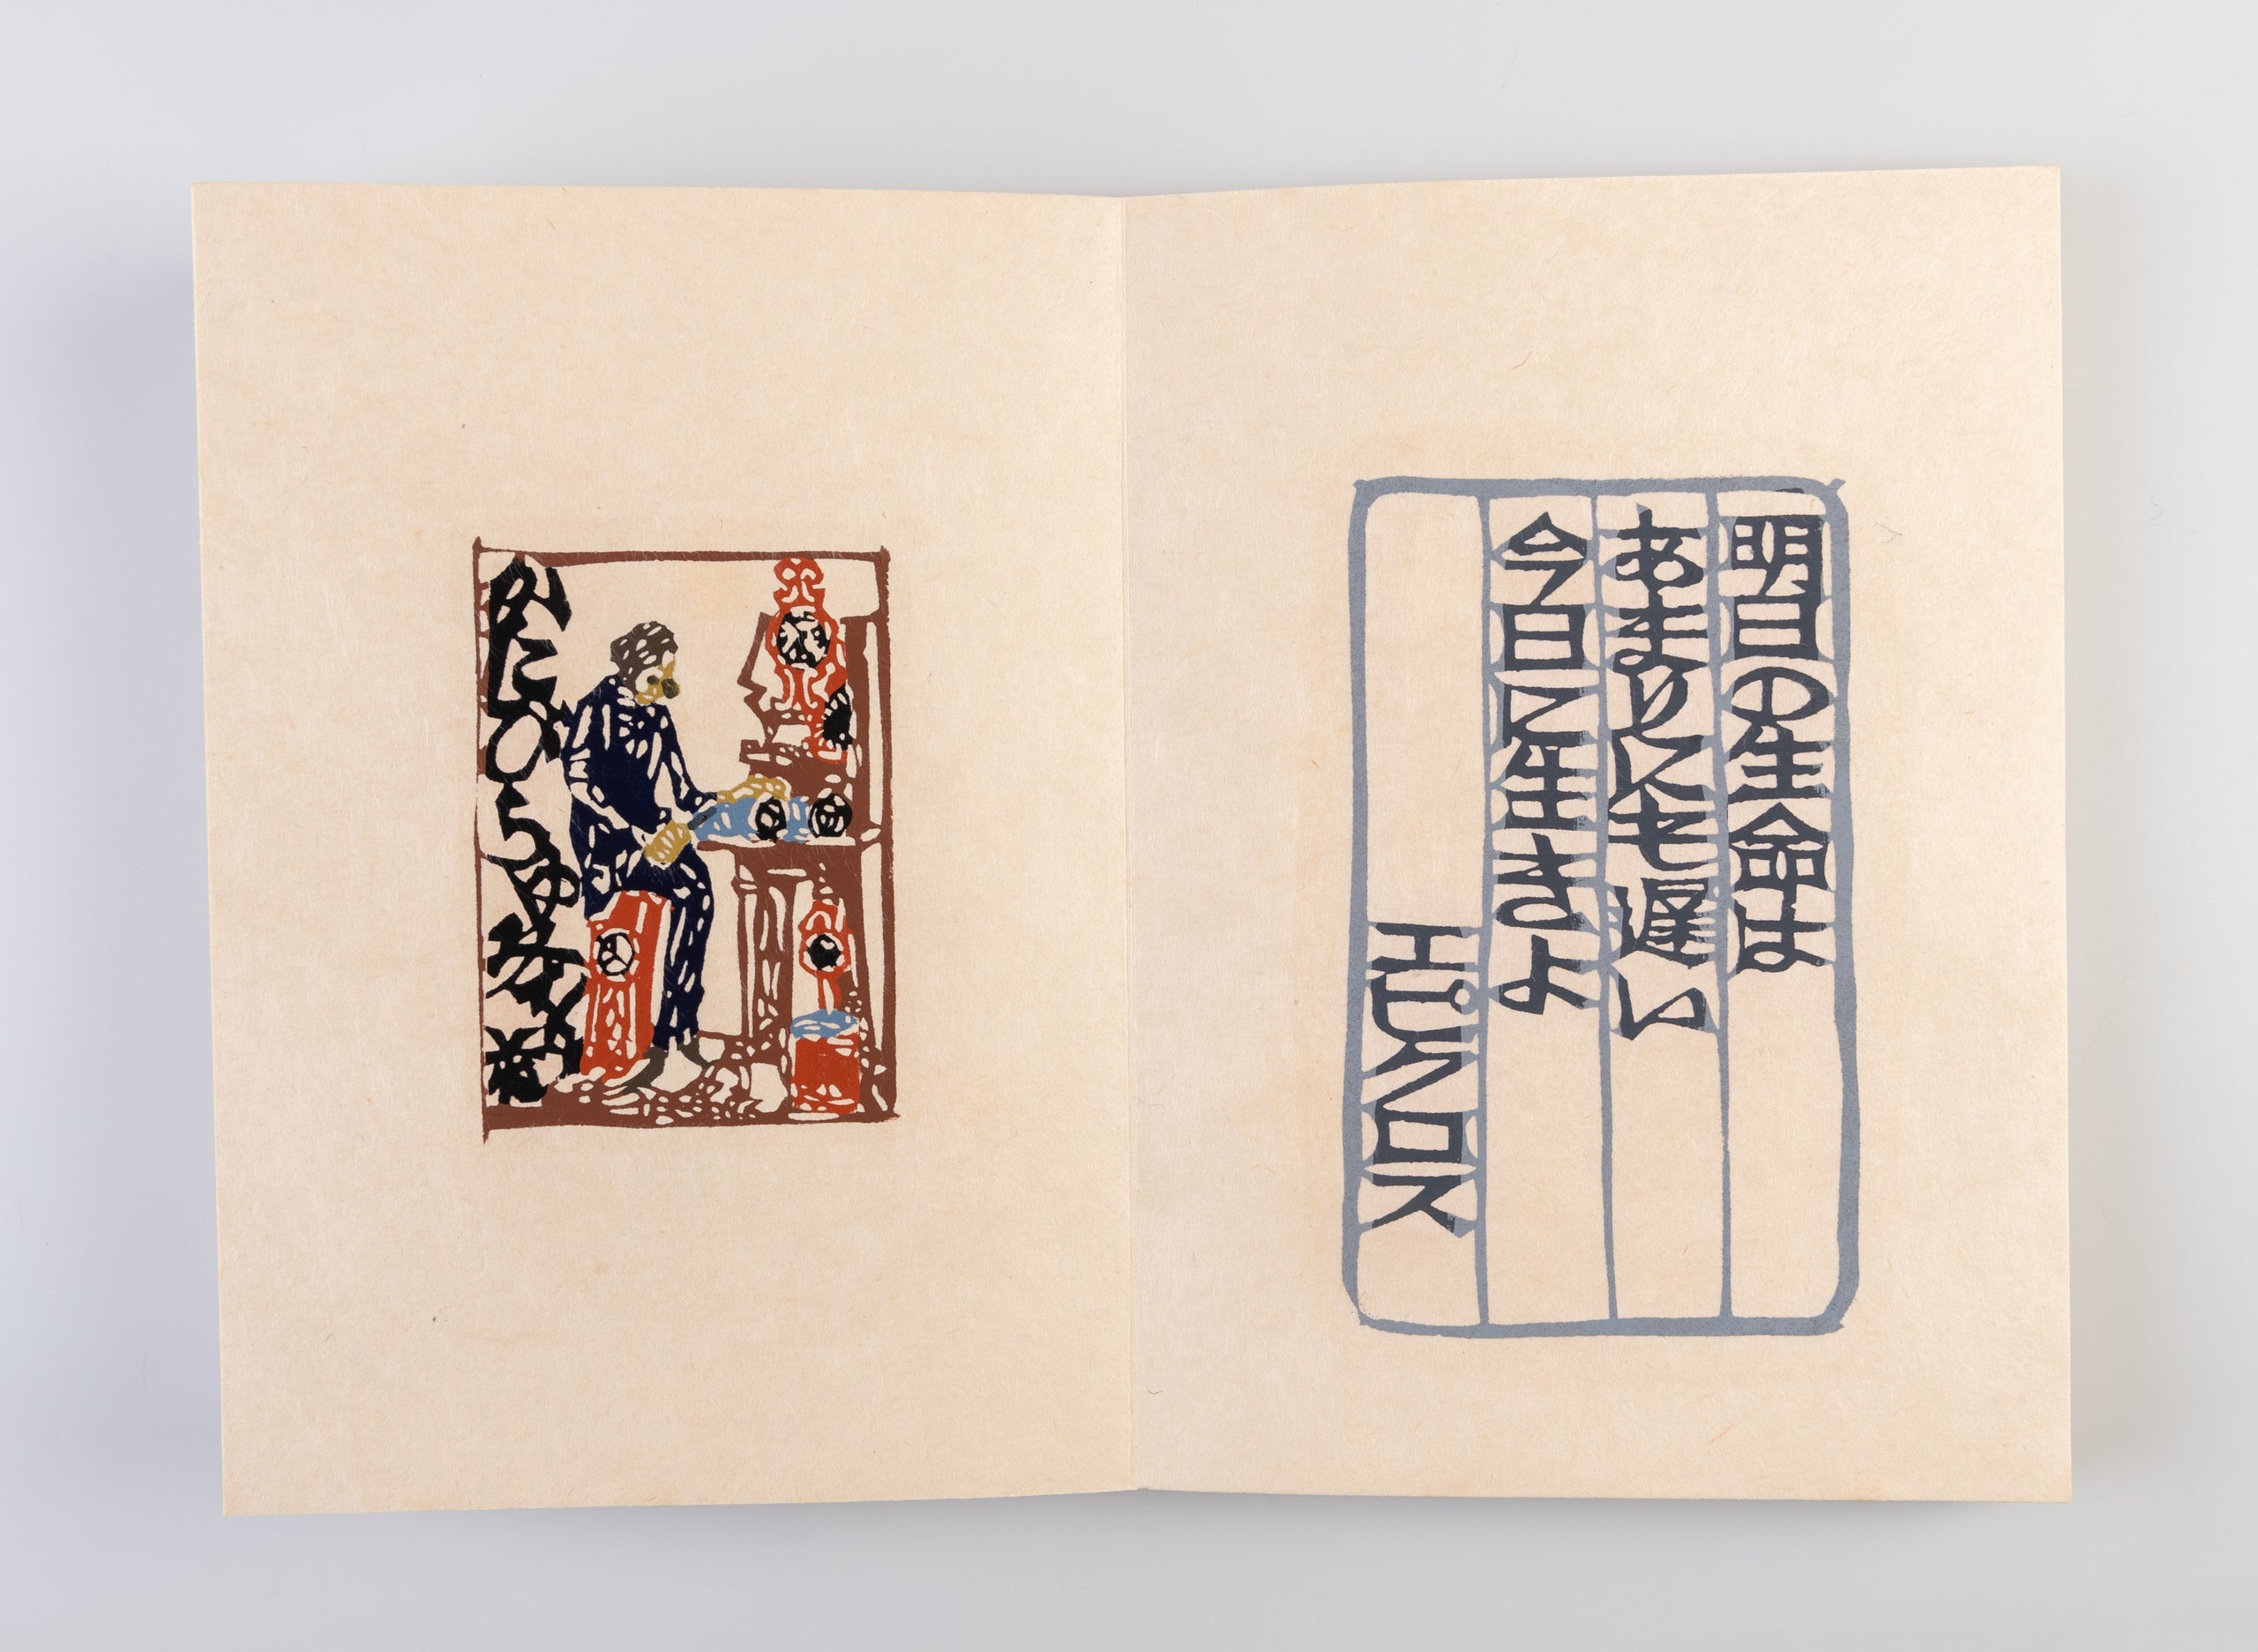 明日の生命は
あまりにも遅い
今日に生きよ
エピクロス
かたひら